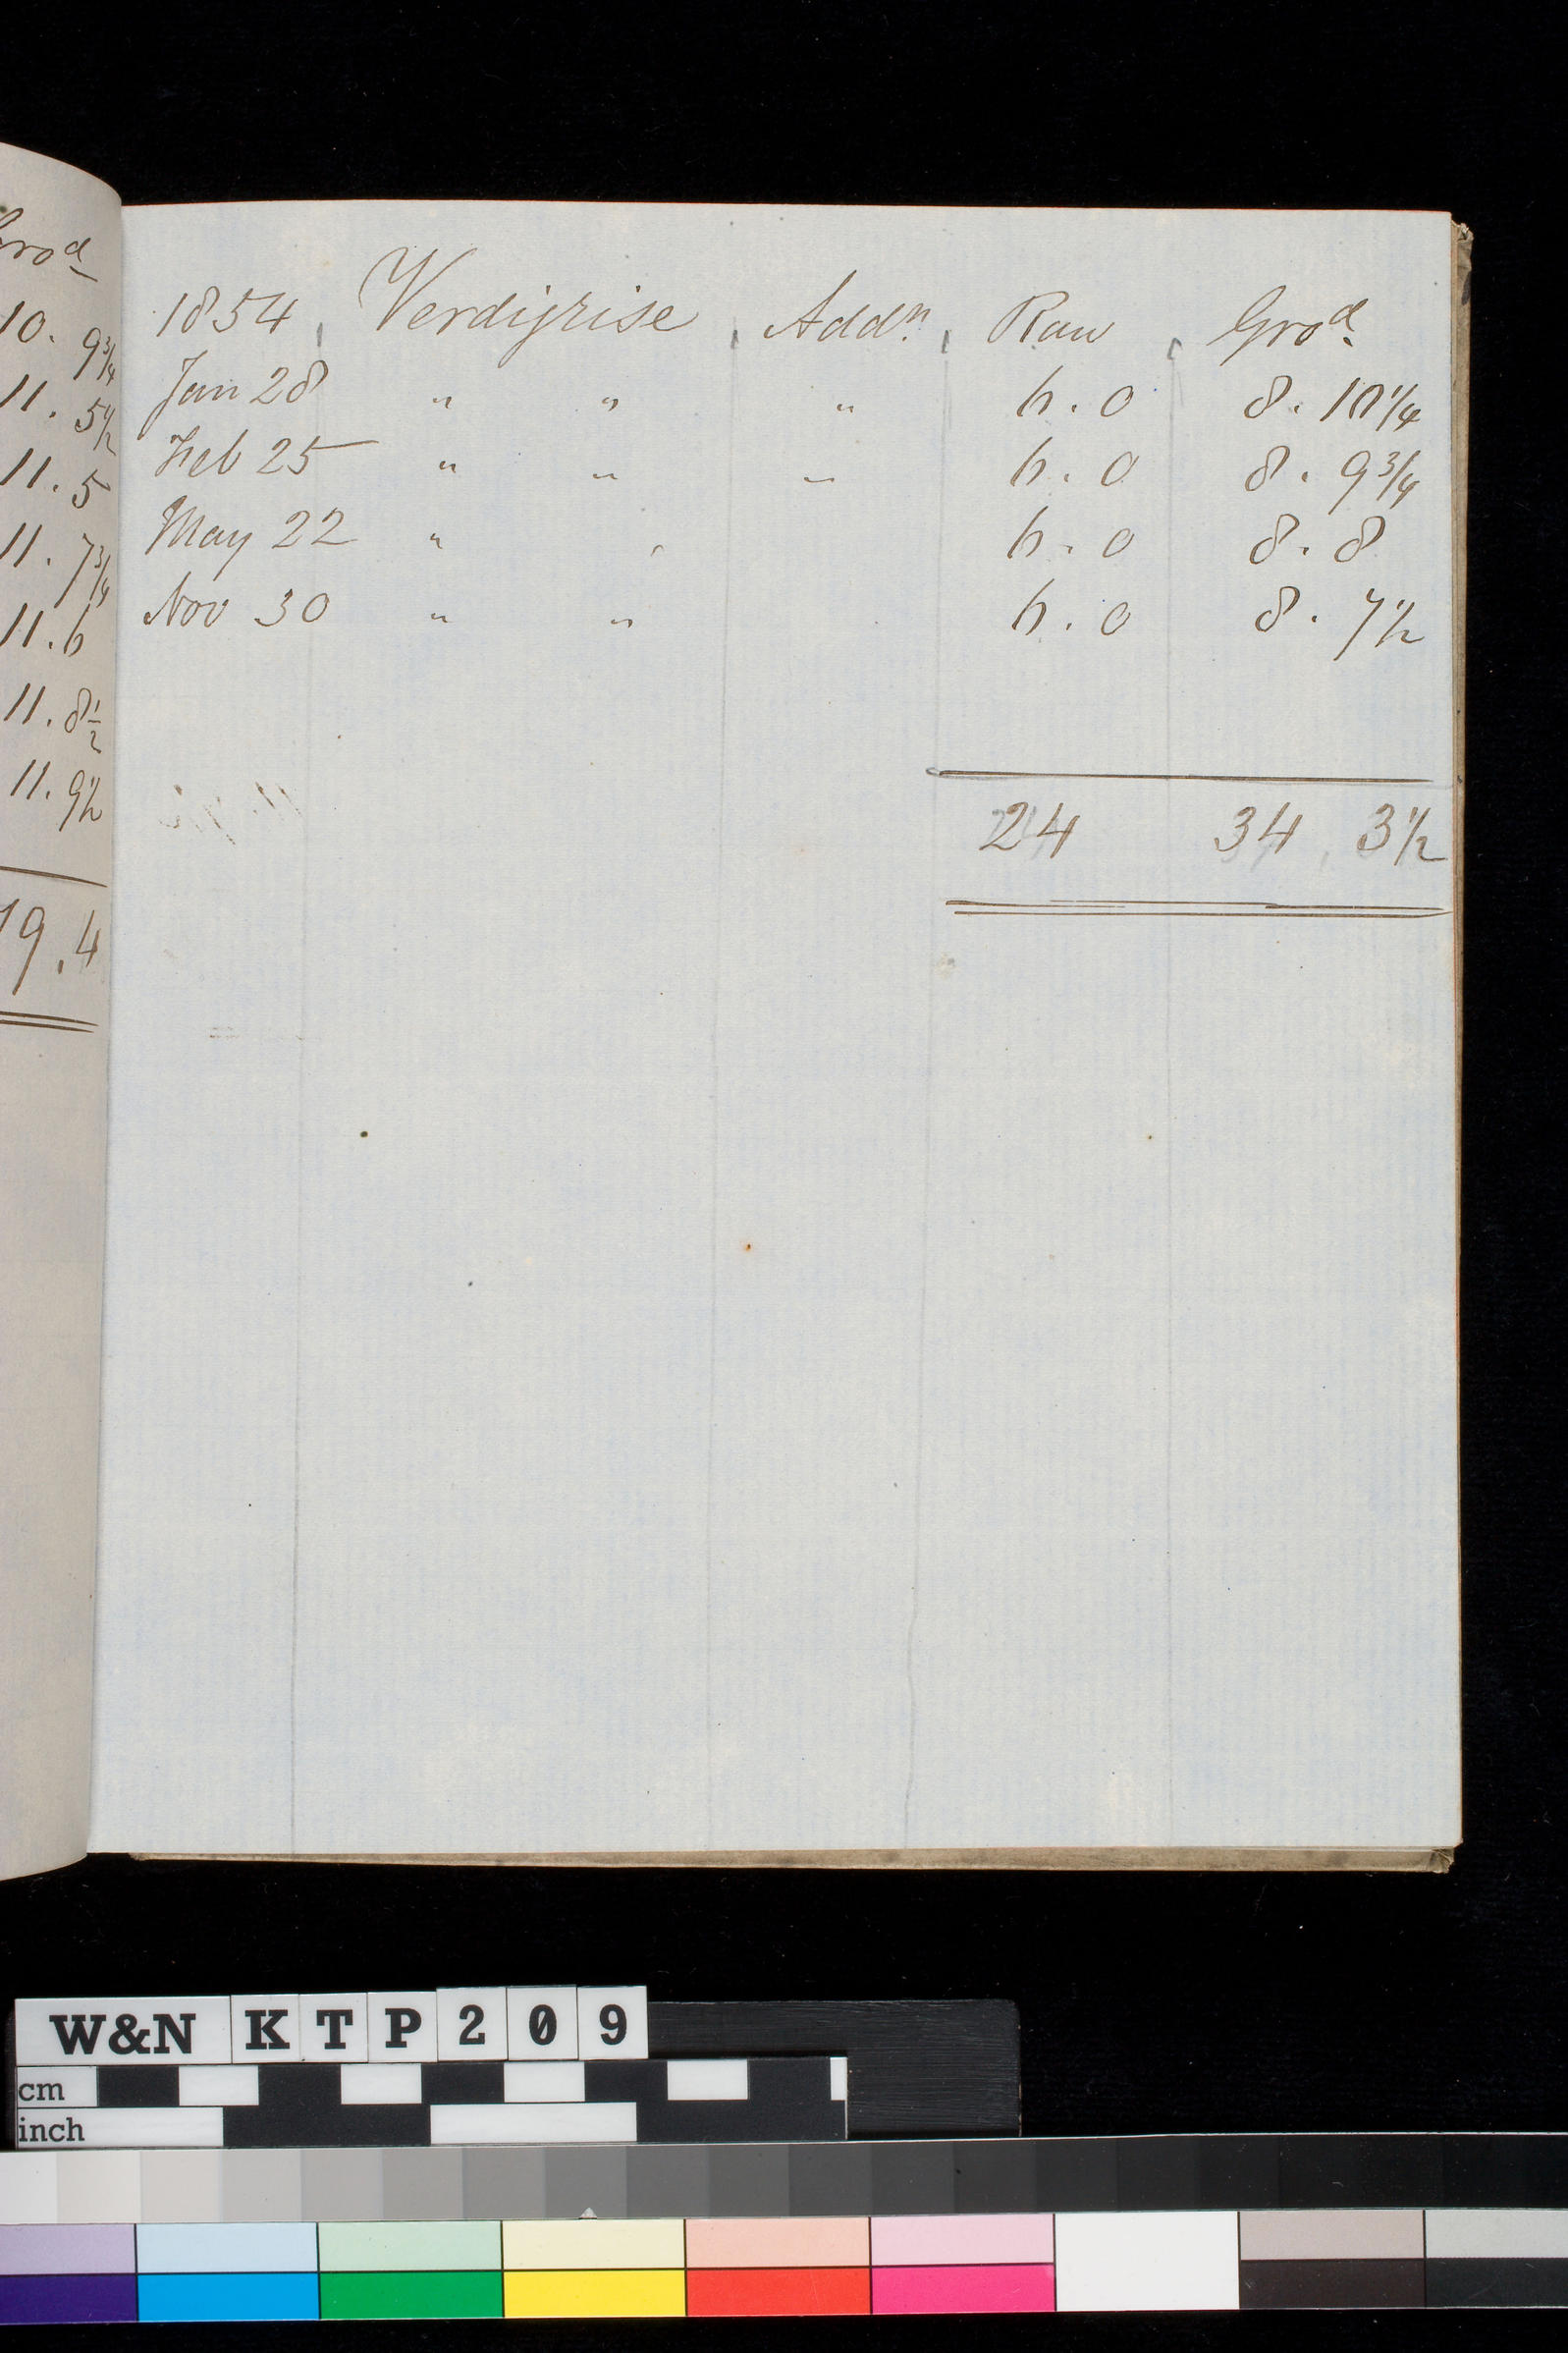 Gro^d
10. 9¾
11. 5½
11. 5
11. 7¾
11. 6
11. 8½
11. 9½
19. 4
1854 Verdigrise Add^n. Raw Gro^d.
Jan 28 " " " 6. 0 8. 10¼
Feb 25 " " " 6. 0 8. 9¾
May 22 " ' 6. 0 8. 8
Nov 30 " " 6. 0 8. 7½
24 34 3½
W&N KTP209
cm
inch